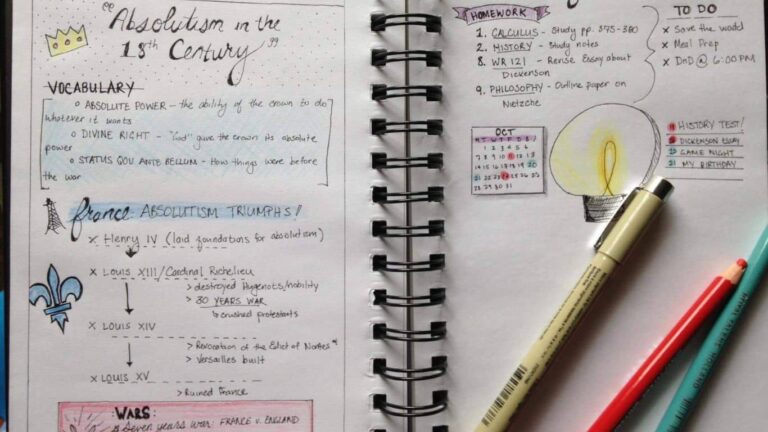 "Absolutism in the
18th Century"
VOCABULARY
ABSOLUTE POWER - the ability of the crown to do
whatever it wants
DIVINE RIGHT - "God" gave the crown its absolute
power
STATUS QOU ANTE BELLUM - How things were before
the war
france: ABSOLUTISM TRIUMPHS!
x Henry IV (laid foundations for absolutism)
x Louis XIII/Cardinal Richelieu
> destroyed Hugenots/nobility
> 30 YEARS WAR
crushed protestants
x LOUIS XIV
> Revocation of the Edict of Nantes
> Versailles built
x LOUIS XV
> Ruined France
WARS:
Seven years war: FRANCE V. ENGLAND
HOMEWORK
1. CALCULUS - Study pp. 375-380
2. HISTORY - Study notes
8. WR 121 - Revise Essay about
Dickenson
9. PHILOSOPHY - Outline paper on
Nietzche
TO DO
x Save the world
x Meal Prep
x DnD @ 6:00 PM
OCT
M T W T F S S
1 2 3 4 5 6
7 8 9 10 11 12 13
14 15 16 17 18 19 20
21 22 23 24 25 26 27
28 29 30 31
11 HISTORY TEST!
DICKENSON ESSAY
20 GAME NIGHT
21 MY BIRTHDAY